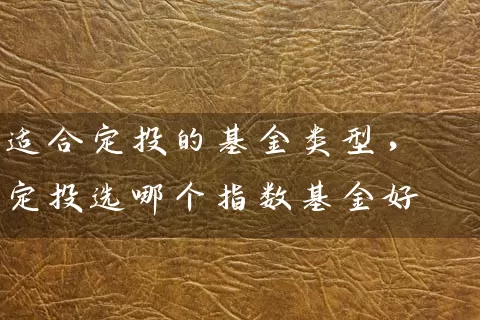 适合定投的基金类型，
定投选哪个指数基金好